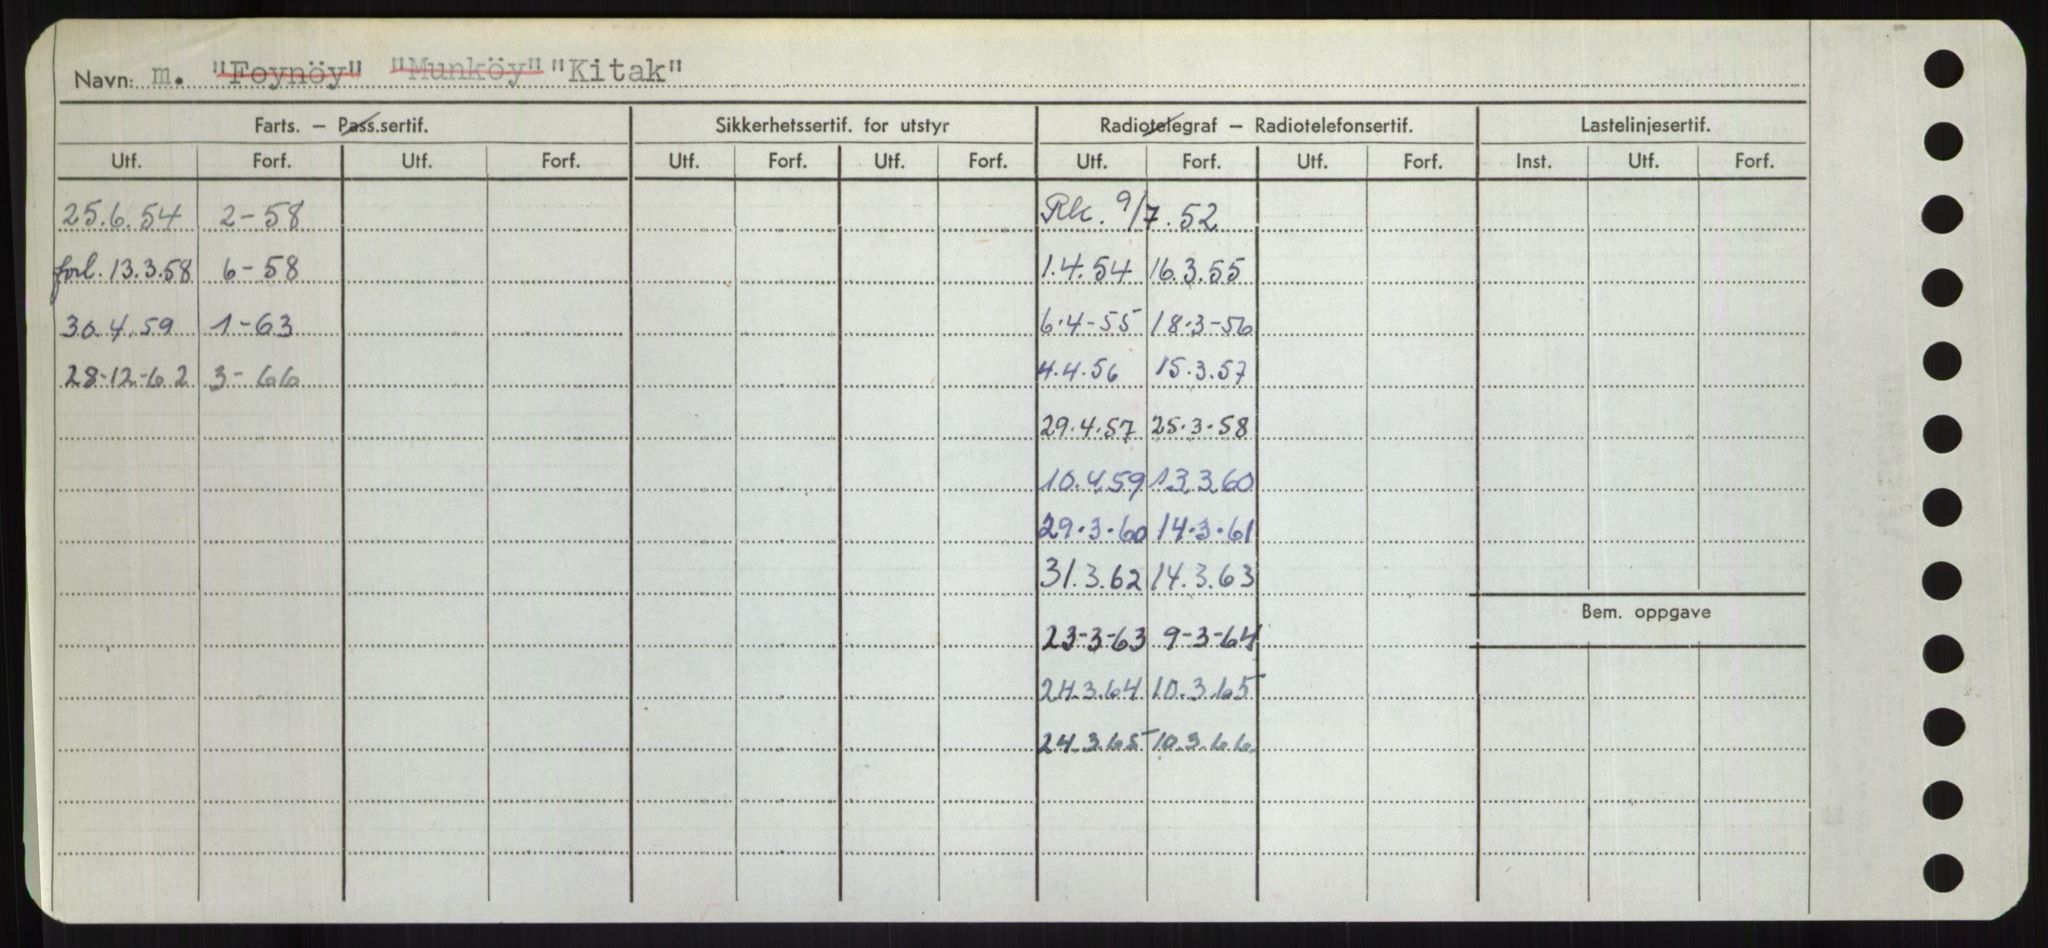 Navn: m. "Foynöy" "Munköy" "Kitak"
Farts. – Pass.sertif. Sikkerhetssertif. for utstyr Radiotelegraf – Radiotelefonsertif. Lastelinjesertif.
Utf. Forf. Utf. Forf. Utf. Forf. Utf. Forf. Utf. Forf. Utf. Forf. Inst. Utf. Forf.
25.6.54 2-58 Rk. 9/7.52
forl. 13.3.58 6-58 1.4.54 16.3.55
30.4.59 1-63 6.4-55 18.3-56
28-12-62 3-66 4.4.56 15.3.57
29.4.57 25.3.58
10.4.59 13.3.60
29.3.60 14.3.61
31.3.62 14.3.63
Bem. oppgave
23-3-63 9-3-64
24.3.64 10.3.65
24.3.65 10.3.66